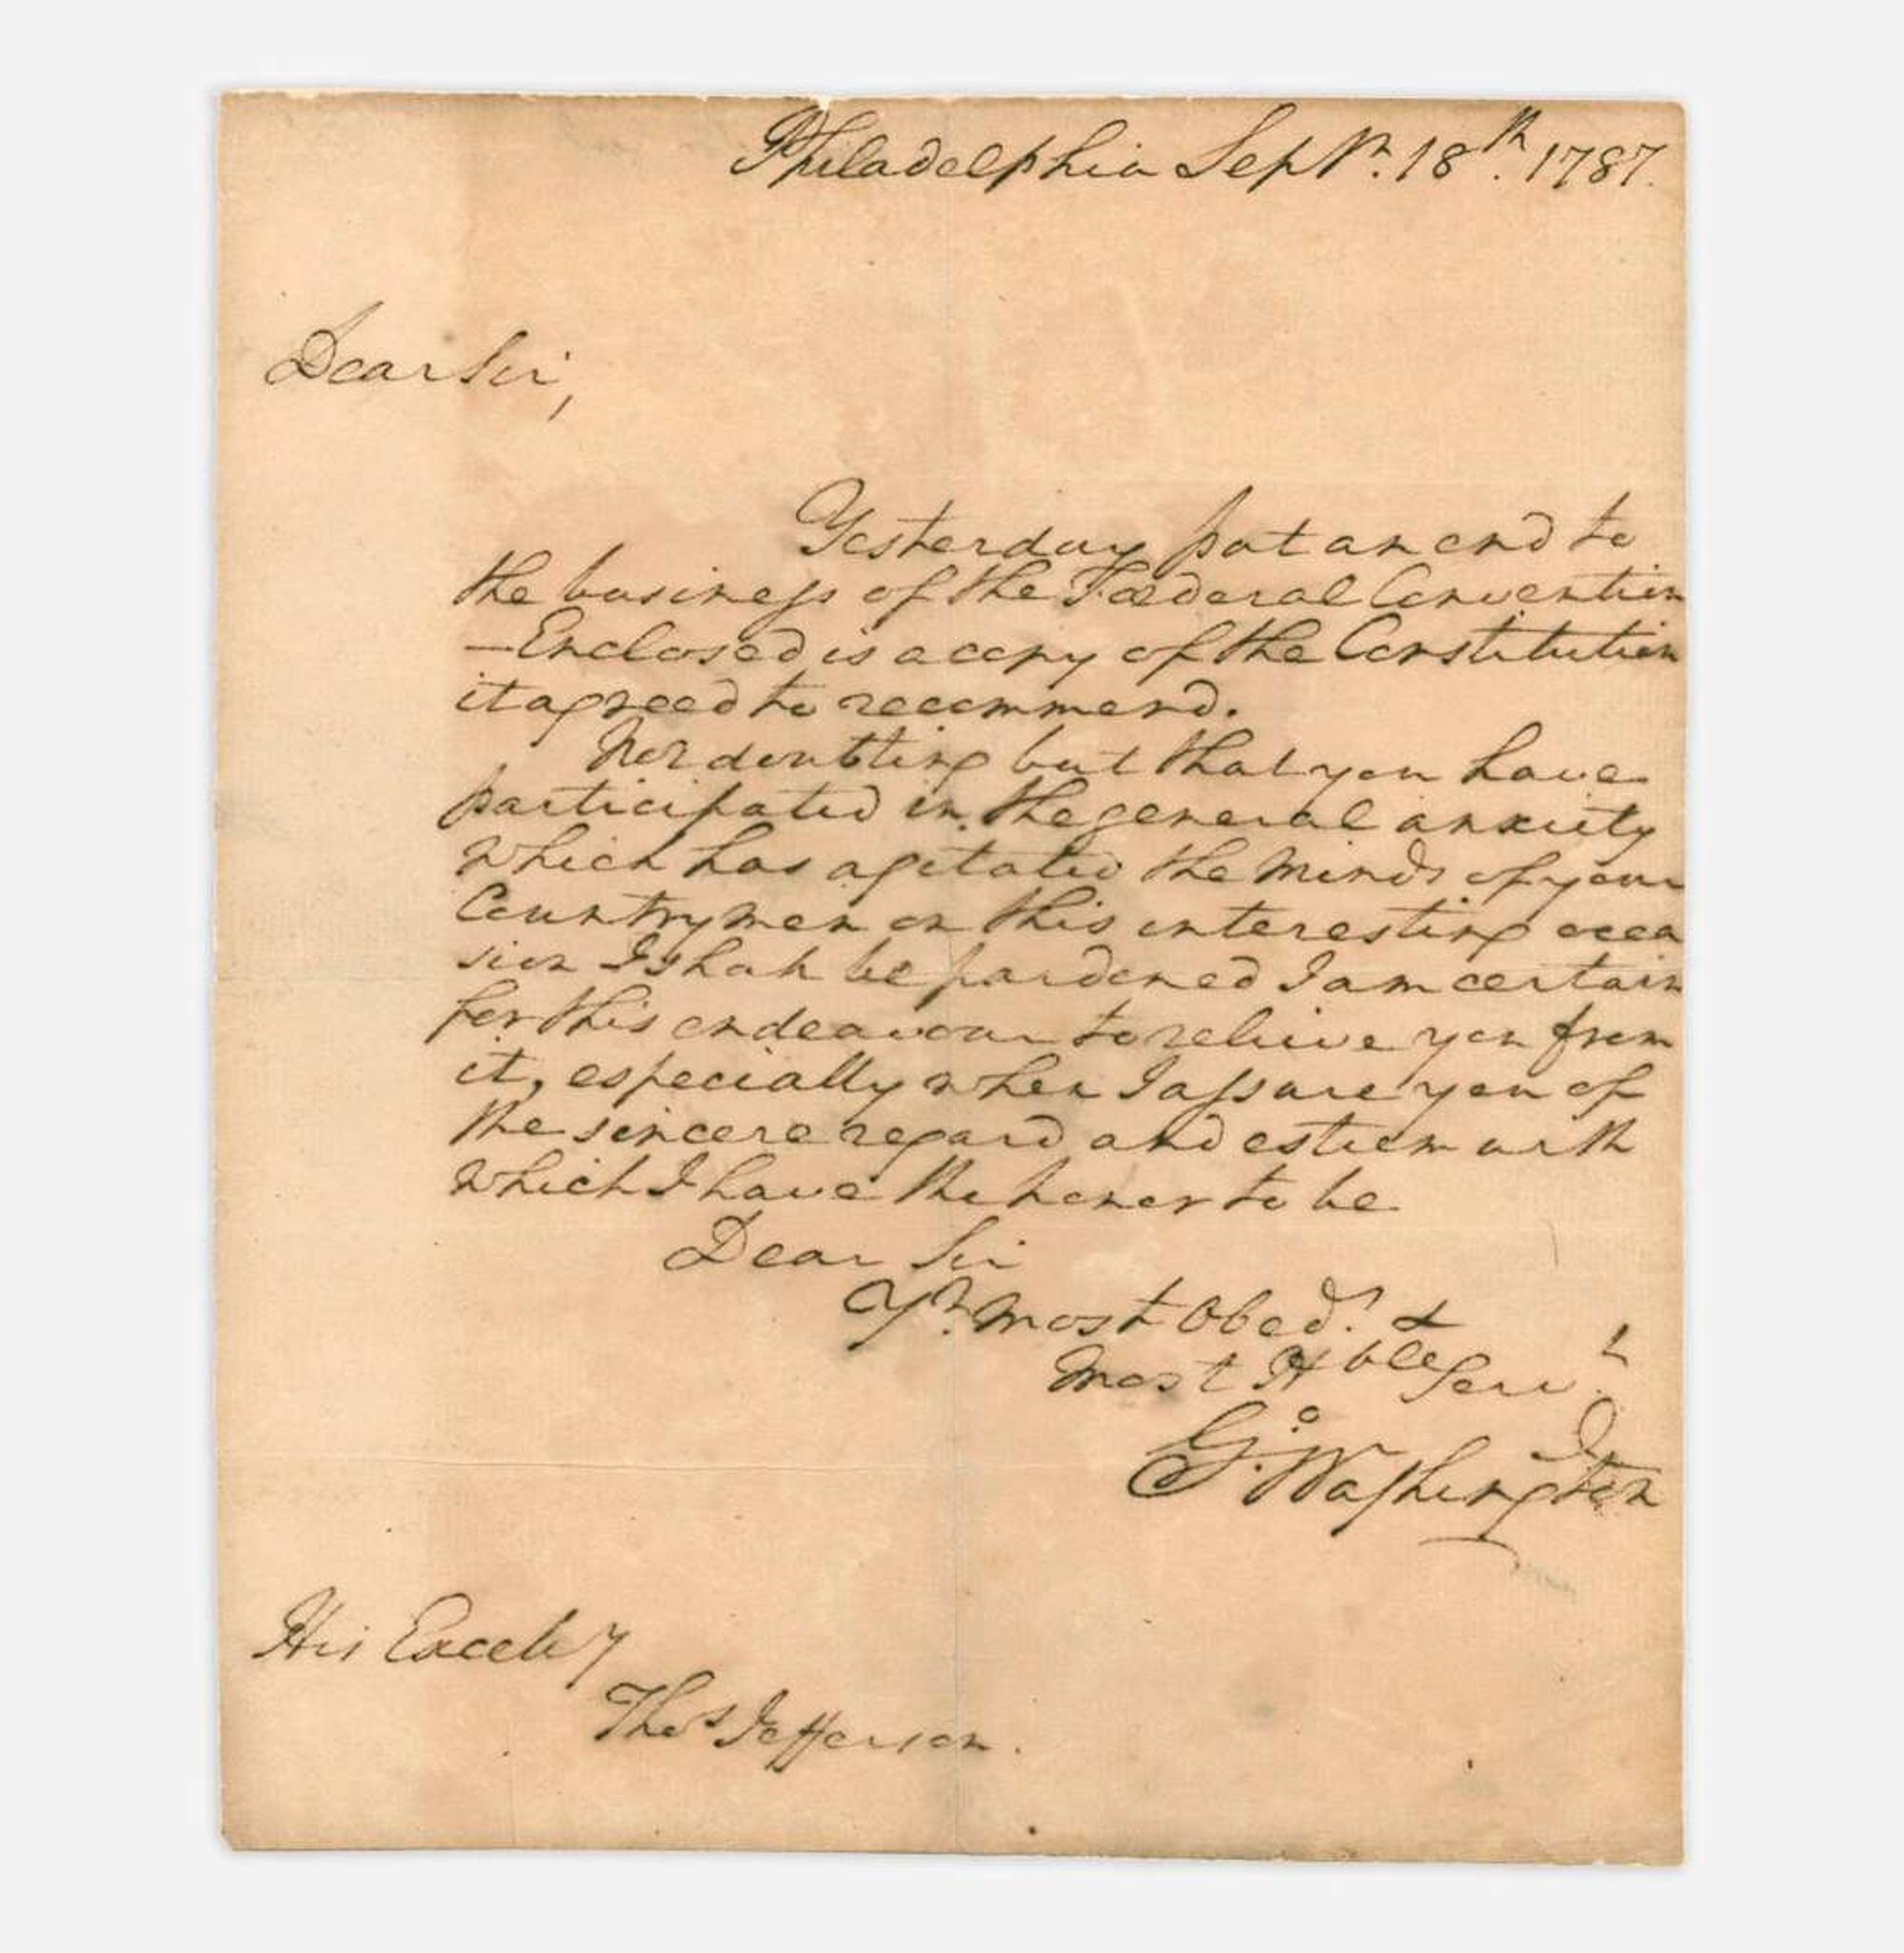 Philadelphia Sepr. 18th. 1787.
Dear Sir,
Yesterday put an end to
the business of the Fœderal Convention
—Enclosed is a copy of the Constitution
it agreed to recommend.
Not doubting but that you have
participated in the general anxiety
which has agitated the minds of your
Countrymen on this interesting occa
sion I shall be pardoned I am certain
for this endeavour to relieve you from
it, especially when I assure you of
the sincere regard and esteem with
which I have the honor to be
Dear Sir
Yr. most Obedt. &
most Hble Servt.
Go. Washington
His Excelly
Thos Jefferson.